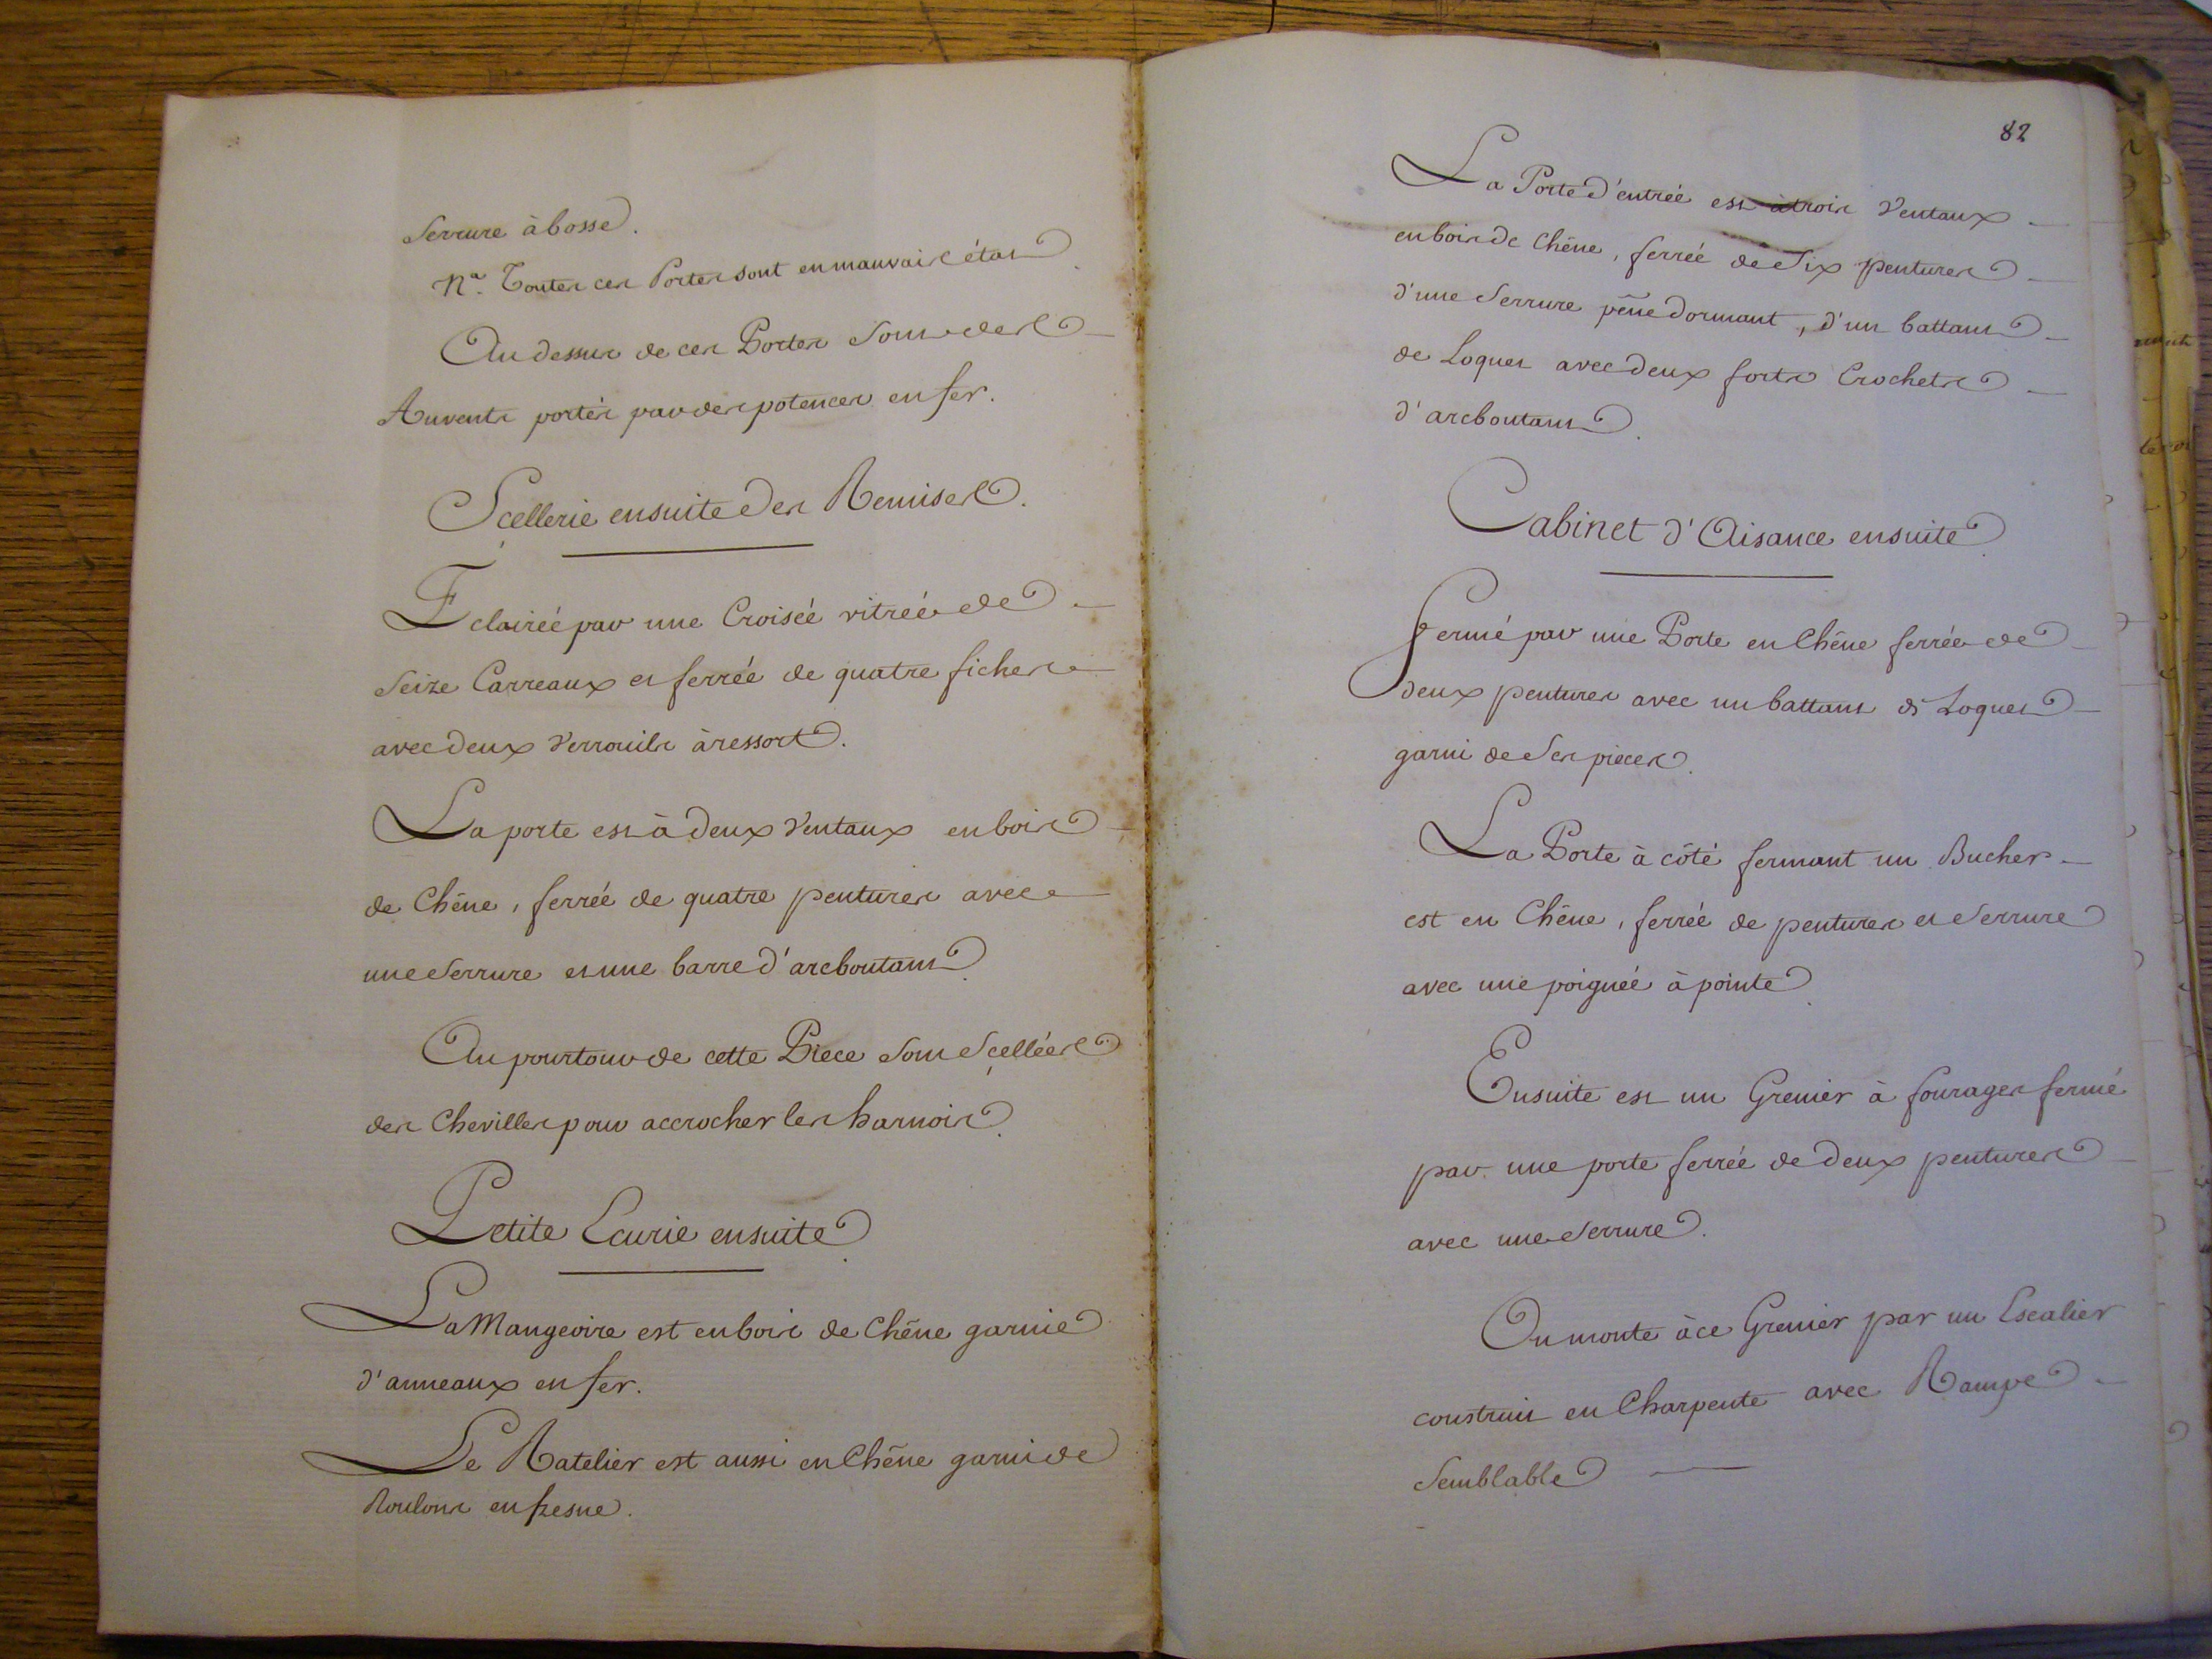 Serrure à bosse.
Na. Toutes ces Portes sont en mauvais état.
Au dessus de ces Portes sont des
Auvents portés par des potences en fer.
Scellerie ensuite des Remises.
Eclairée par une Croisée vitrée de
Seize Carreaux et ferrée de quatre fiches
avec deux Verrouils à ressort.
La porte est à deux Ventaux en bois
de Chêne, ferrée de quatre pentures avec
une Serrure et une barre d'arcboutant.
Au pourtour de cette Piece sont Scellées
des Chevilles pour accrocher les harnois.
Petite Ecurie ensuite.
La Mangeoire est en bois de Chêne garnie
d'anneaux en fer.
Le Ratelier est aussi en Chêne garni de
Roulons en fresne.
82
La Porte d'entrée est à trois Ventaux
en bois de Chêne, ferrée de Six pentures
d'une Serrure pêne dormant, d'un battant
de Loquet avec deux forts Crochets
d'arcboutant.
Cabinet d'Aisance ensuite.
Fermé par une Porte en Chêne ferrée de
deux pentures avec un battant de Loquet
garni de Ses pieces.
La Porte à côté fermant un Bucher
est en Chêne, ferrée de pentures et Serrure
avec une poignée à pointe.
Ensuite est un Grenier à fourages fermé
par une porte ferrée de deux pentures
avec une Serrure.
On monte à ce Grenier par un Escalier
construit en Charpente avec Rampe
Semblable